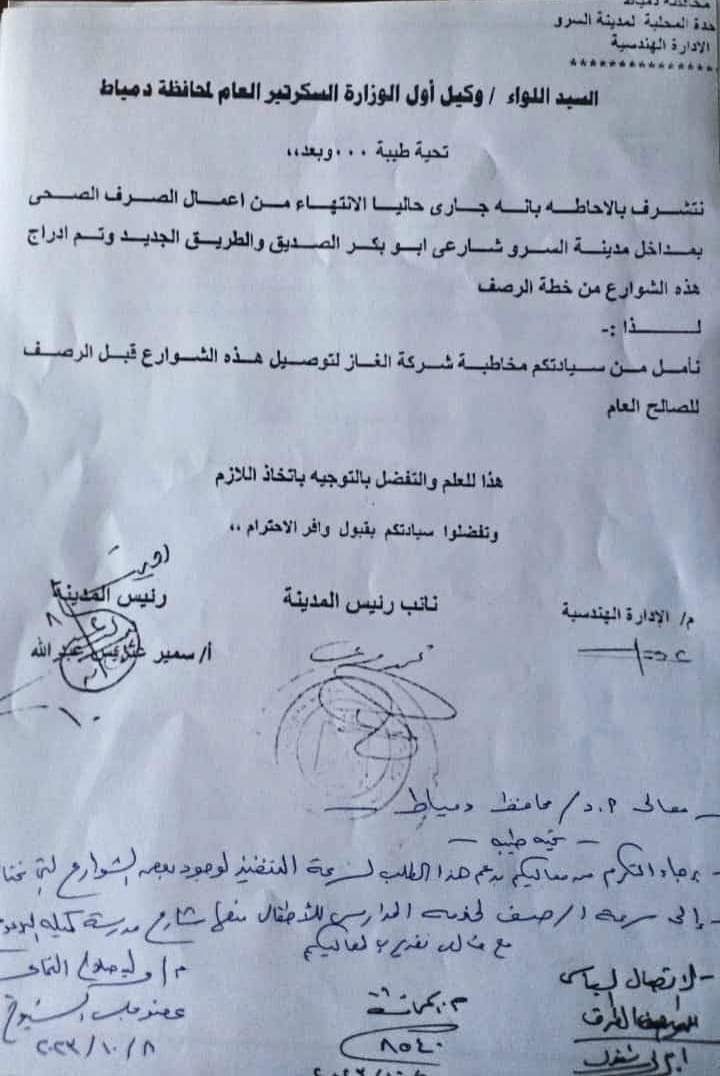 محافظة دمياط
حدة المحلية لمدينة السرو
الادارة الهندسية
***************
السيد اللواء / وكيل أول الوزارة السكرتير العام لمحافظة دمياط
تحية طيبة ٠٠٠ وبعد،،
نتشرف بالاحاطه بانه جارى حاليا الانتهاء من اعمال الصرف الصحى
بمداخل مدينة السرو شارعى ابو بكر الصديق والطريق الجديد وتم ادراج
هذه الشوارع من خطة الرصف
لـــــذا :-
نأمل من سيادتكم مخاطبة شركة الغاز لتوصيل هذه الشوارع قبل الرصف
للصالح العام
هذا للعلم والتفضل بالتوجيه باتخاذ اللازم
وتفضلوا سيادتكم بقبول وافر الاحترام ،،
م/ الإدارة الهندسية
نائب رئيس المدينة
رئيس المدينة
أ/ سمير عبد الله
- معالى أ.د/ محافظ دمياط -
- تحيه طيبه -
- برجاء التكرم من معاليكم بدعم هذا الطلب لسرعة التنفيذ لوجود بعض الشوارع التى
- إلى سرعة الرصف لخدمة المدارس للأطفال منها شارع مدرسة
مع خالص تقديرى لمعاليكم
عضو مجلس الشيوخ
٢٠٢٣/١٠/٨
- للاتصال
الطرق
٨٥٤٠